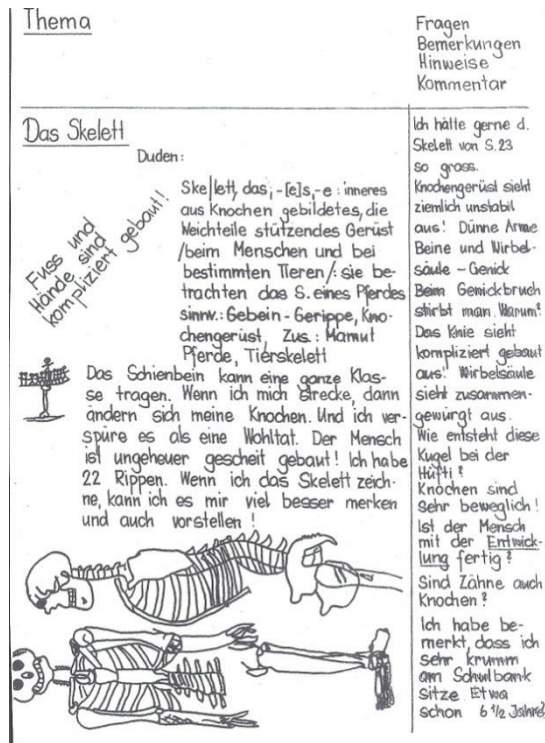 Thema
Fragen
Bemerkungen
Hinweise
Kommentar
Das Skelett
Duden:
Fuss und
Hände sind
kompliziert gebaut!
Ske|lett, das, -[e]s, -e : inneres
aus Knochen gebildetes, die
Weichteile stützendes Gerüst
/beim Menschen und bei
bestimmten Tieren/: sie be-
trachten das S. eines Pferdes
sinnv.: Gebein - Gerippe, Kno-
chengerüst, Zus.: Mamut
Pferde, Tierskelett
Das Schienbein kann eine ganze Klas-
se tragen. Wenn ich mich strecke, dann
ändern sich meine Knochen. Und ich ver-
spüre es als eine Wohltat. Der Mensch
ist ungeheuer gescheit gebaut! Ich habe
22 Rippen. Wenn ich das Skelett zeich-
ne, kann ich es mir viel besser merken
und auch vorstellen!
Ich hätte gerne d.
Skelett von S.23
so gross.
Knochengerüst sieht
ziemlich unstabil
aus! Dünne Arme
Beine und Wirbel-
säule - Genick
Beim Genickbruch
stirbt man. Warum?
Das Knie sieht
kompliziert gebaut
aus! Wirbelsäule
sieht zusammen-
gewürgt aus.
Wie entsteht diese
Kugel bei der
Hüfti?
Knochen sind
sehr beweglich!
Ist der Mensch
mit der Entwick-
lung fertig?
Sind Zähne auch
Knochen?
Ich habe be-
merkt, dass ich
sehr krumm
am Schulbank
sitze Etwa
schon 6 1/2 Jahre?